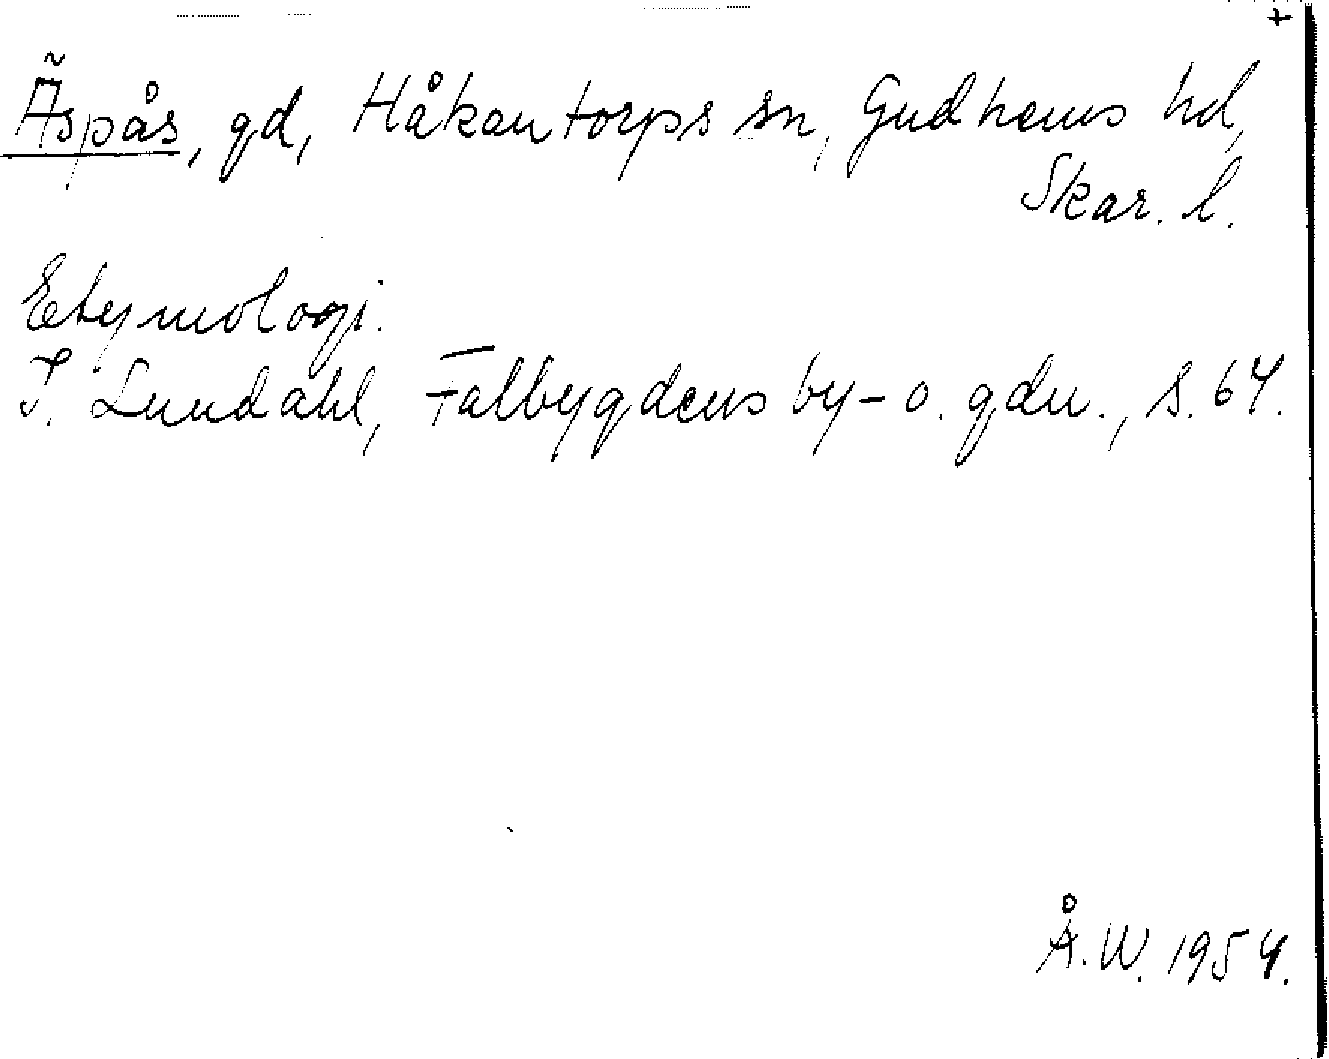 +
Äspås, gd, Håkantorps sn, Gudhems hd,
Skar. l.
Etymologi.
I. Lundahl, Falbygdens by- o. gdn., s. 64.
Å.W. 1954.